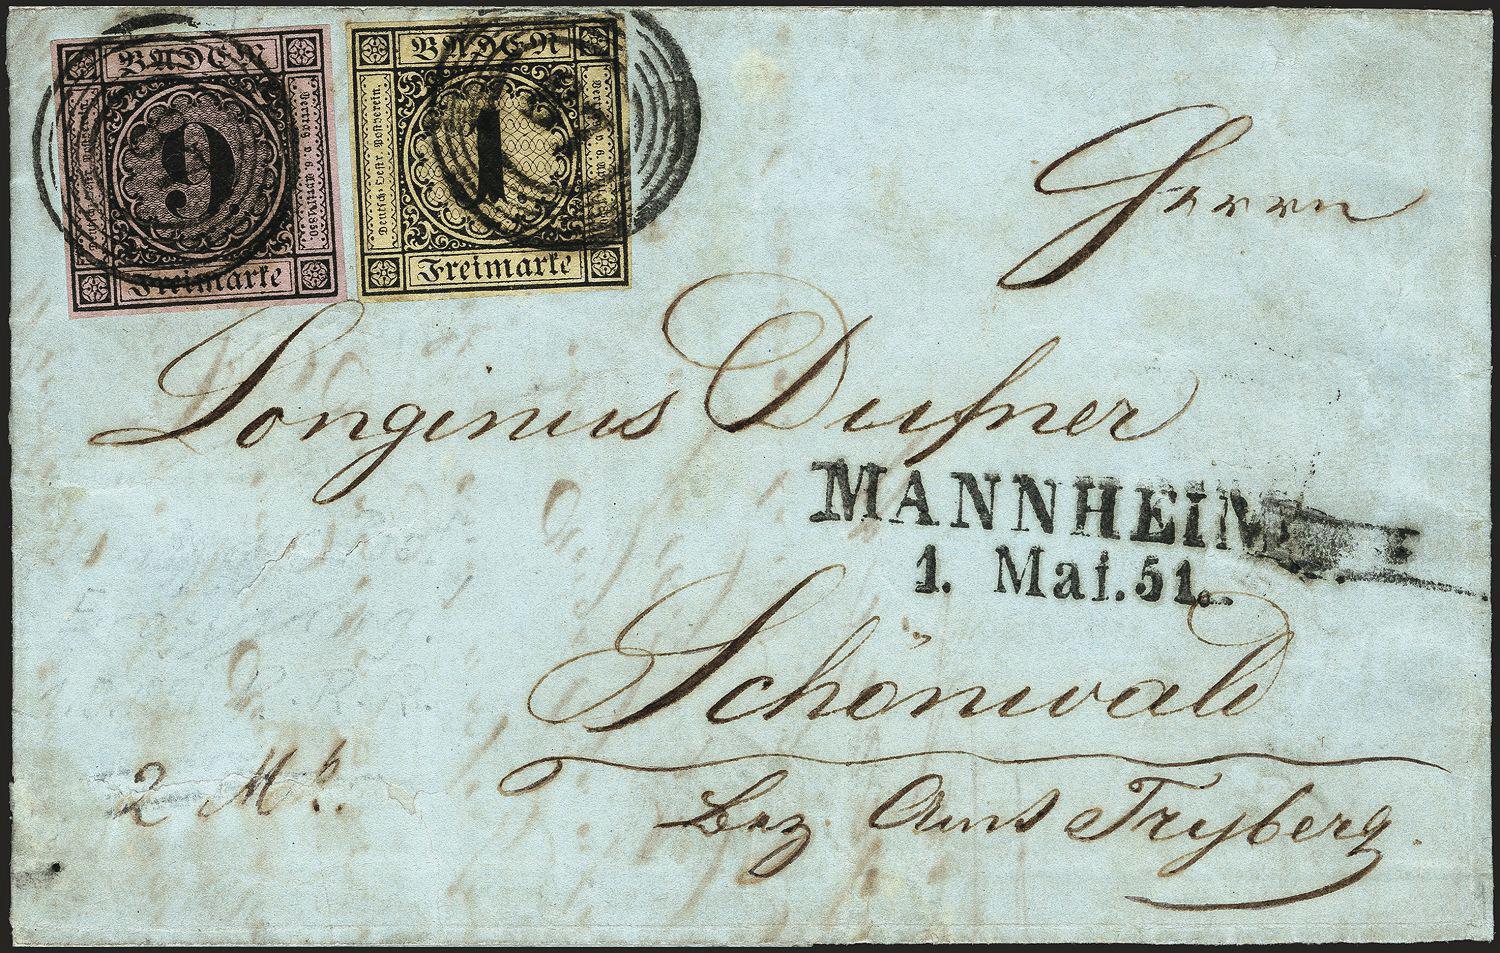 BADEN
9
Freimarke
Vertrag v. 6. April 1850.
BADEN
1
Freimarke
Deutsch-Oestr. Postverein.
Herrn
Longinus Dufner
MANNHEIM
1. Mai. 51.
Schönwald
Bez. Amt Tryberg.
2